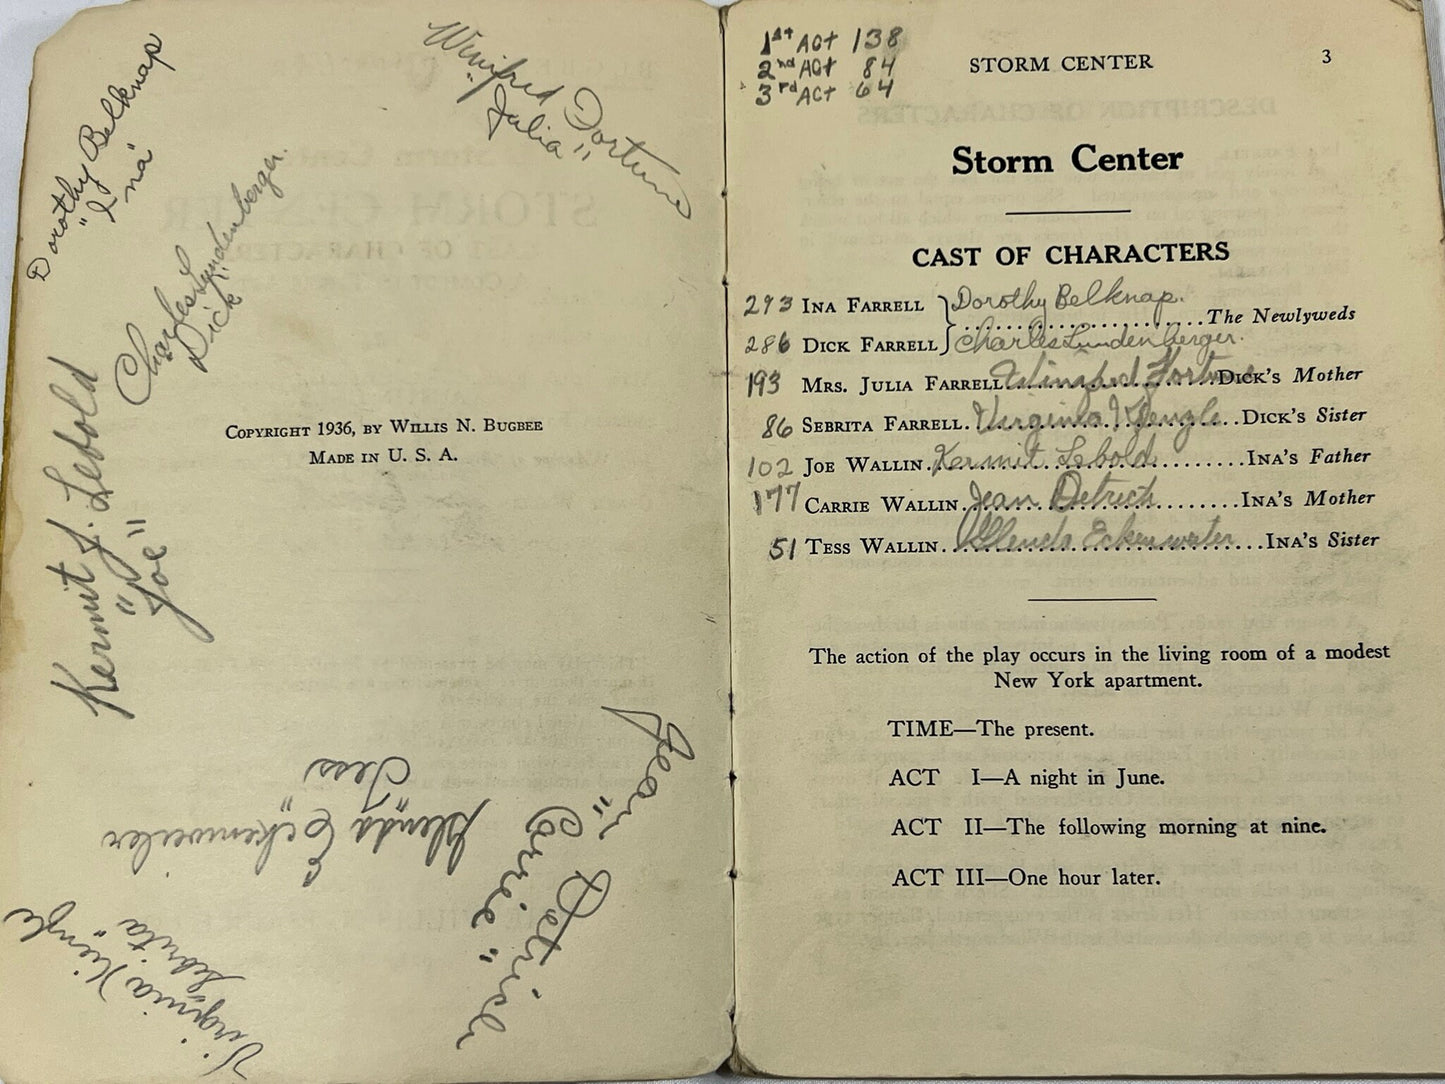 Dorothy Belknap
"Ina"
Winifred Fortune
"Julia"
Charles Lundenberger.
"Dick"
Kermit J. Lebold
"Joe"
Copyright 1936, by Willis N. Bugbee
Made in U. S. A.
Jean Detrich
"Carrie"
Glenda Eckenweiler
"Tess"
Virginia Kienzle
"Sebrita"
1st Act 138
2nd Act 84
3rd Act 64
STORM CENTER 3
Storm Center
CAST OF CHARACTERS
293 Ina Farrell Dorothy Belknap.
The Newlyweds
286 Dick Farrell Charles Lundenberger.
193 Mrs. Julia Farrell Winifred Fortune Dick's Mother
86 Sebrita Farrell. Virginia Kienzle Dick's Sister
102 Joe Wallin Kermit Lebold Ina's Father
177 Carrie Wallin Jean Detrich Ina's Mother
51 Tess Wallin Glenda Eckenweiler Ina's Sister
The action of the play occurs in the living room of a modest
New York apartment.
TIME—The present.
ACT I—A night in June.
ACT II—The following morning at nine.
ACT III—One hour later.